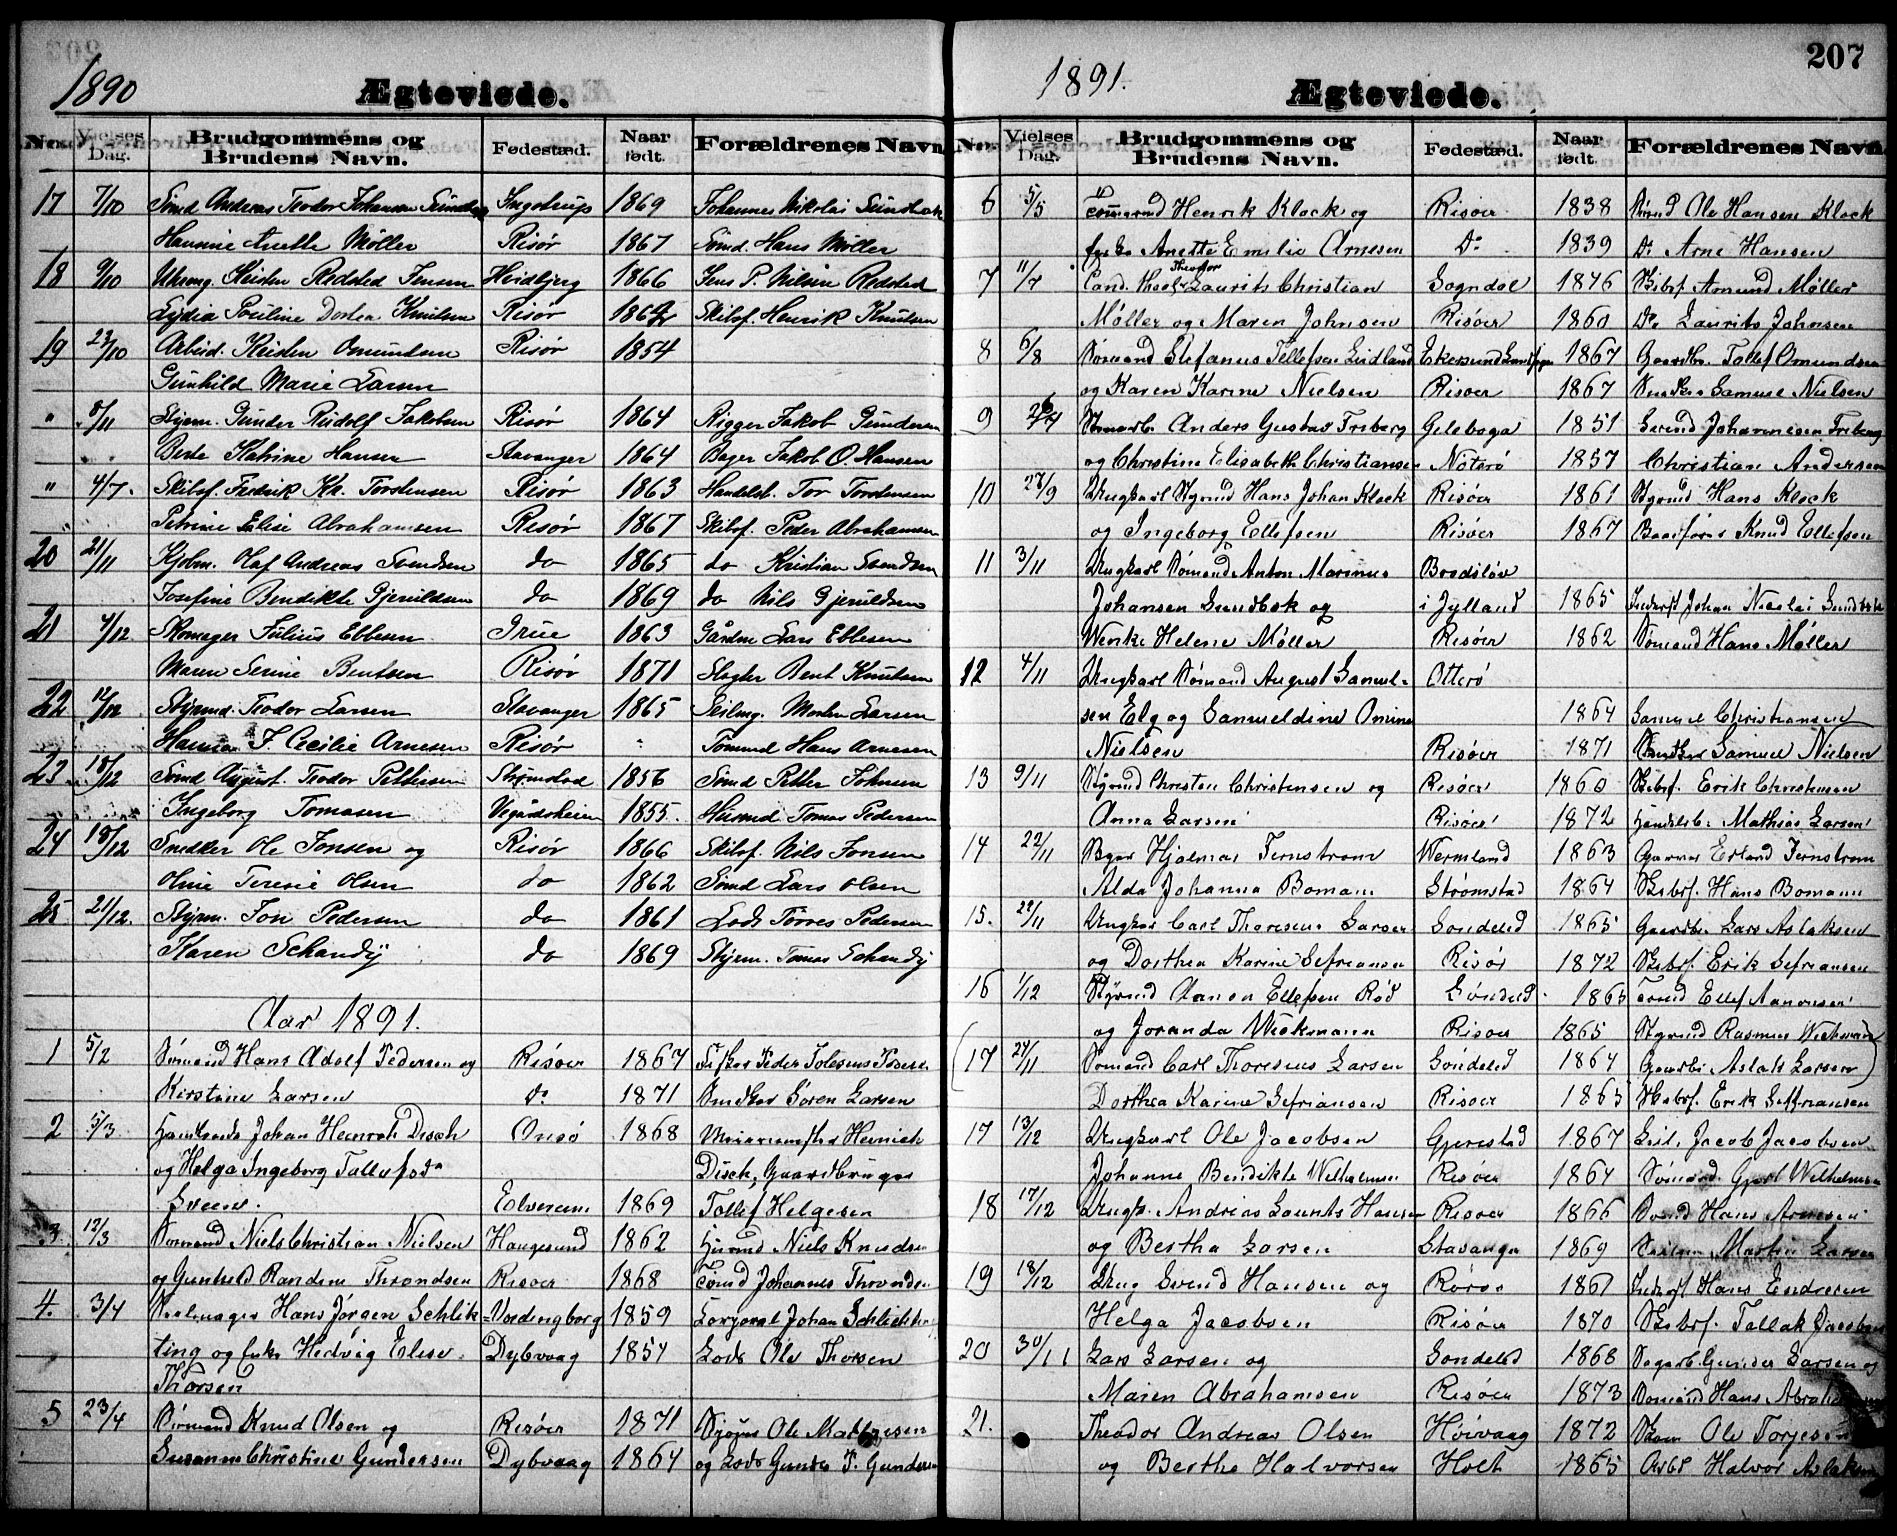 1890
Ægteviede.
No. Vielses Dag. Brudgommens og Brudens Navn. Fødestæd. Naar født. Forældrenes Navn
17 7/10 Sømd Andreas Teodor Johansen Ingstrup 1869 Johannes Nikolai
Hansine Anette Møller Risør 1867 Sømd. Hans Møller
18 9/10 Kristen Redsted Jensen Heidbjerg 1866 Jens P. Nilsen Redsted
Lydia Pouline Dortea Knutsen Risør Skibsf. Henrik Knutsen
19 23/10 Arbeid. Kristen Omundsen Risør 1854
Gunhild Marie Larsen
" 8/11 Styrm. Gunder Rudolf Jakobsen Risør 1864 Rigger Jakob Gundersen
Berte Katrine Hansen Stavanger 1864 Bager Jakob O. Hansen
" 4/7. Skibsf. Fredrik Kr. Torstensen Risør 1863 Handelsb. Tor Torstensen
Petrine Elise Abrahamsen Risør 1867 Skibsf. Peder Abrahamsen
20 21/11 Kjøbm. Olaf Andreas Svendsen do 1865 do Kristian Svendsen
Josefine Bendikte Gjeruldsen do 1869 do Nils Gjeruldsen
21 4/12 Skomager Julius Ebbesen Grue 1863 Gårdm. Lars Ebbesen
Maren Serine Bentsen Risør 1871 Slagter Bent Knutsen
22 12/12 Styrmd. Teodor Larsen Stavanger 1865 Seilmg. Morten Larsen
Hanna F. Cecilie Arnesen Risør " Tømmd Hans Arnesen
23 18/12 Sømd August Teodor Pettersen Strømstad 1856 Sømd Petter Johnsen
Ingeborg Tomasen Vegårdsheien 1855. Husmd Tomas Pedersen
24 18/12 Snedker Ole Jonsen og Risør 1866 Skibsf. Nils Jonsen
Oline Teresie Olsen do 1862 Sømd Lars Olsen
25 21/12. Styrm. Jon Pedersen do 1861 Lods Tørres Pedersen
Karen Schandij do 1869 Styrm. Tomas Schandij
Aar 1891.
1 5/2 Sømand Hans Adolf Pedersen og Risøer 1867 Peder
Kirstine Larsen do 1871 Søren Larsen
2 5/3 Johan Heinrich Disch Onsø 1868 Heinich
og Helga Ingeborg Tallefsd Disch, Gaardbruger
Sveen. Elverum 1869 Tallef Helgesen
3 12/3 Sømand Niels Christian Nielsen Haugesund 1862 Husmd Niels Knudsen
og Gunhild Randine Throndsen Risøer 1868 Tømd Johannes Throndsen
4. 3/4 Hans Jørgen Schlik= Vordingborg 1859 Johan
ting og Enke Hedvig Elise Dybvaag 1857 Lods Ole Thorsen
Thorsen
5 23/4 Sømand Knud Olsen og Risøer 1871 Ole
Susanne Christine Gundersen Dybvaag 1864 og Lods Gunder P. Gundersen
207
1891.
Ægteviede.
No. Vielses Dag. Brudgommens og Brudens Navn. Fødestæd. Naar født. Forældrenes Navn.
6 5/5 Tømmermd Henrik Klock og Risøer 1838 Sømd Ole Hansen Klock
Anette Emilie Arnesen Do 1839 Do Arne Hansen
7 11/7 Cand. theol. Theodor Laurits Christian Sogndal 1876 Skibsf. Amund Møller
Møller og Maren Johnsen Risøer 1860 Do. Laurits Johnsen
8 6/8 Sømand Stefanus Tellefsen Lindland Ekersund 1867 Gaardbr. Tallef Omundsen
og Karen Karine Nielsen Risøer 1867 Samuel Nielsen
9 Anders Gustav Friberg Gileboga 1851 Johannesen Friberg
og Christine Elisabeth Christiansen Nøterø 1857 Christian Andersen
10 28/9 Ungkarl Styrmd Hans Johan Klock Risøer 1861 Styrmd Hans Klock
og Ingeborg Ellefsen Risøer 1867 Knud Ellefsen
11 3/11 Ungkarl Sømand Anton Marinus Brødsløv
Johansen Sundbek og i Jylland 1865 Johan Nicolai Sundbek
Wenke Helene Møller Risøer 1862 Sømand Hans Møller
12 4/11 Ungkarl Sømand August Samuel- Otterø
sen Elg og Samueldine Omine 1864 Samuel Christiansen
Nielsen Risøer 1871 Samuel Nielsen
13 9/11 Styrmd Christen Christensen og Risøer 1860 Skibsf. Erik Christensen
Anna Larsen Risøer 1872 Handelsb. Mathias Larsen
14 22/11 Bgsv Hjalmar Fernstrøm Wermland 1863 Erland Fernstrøm
Alda Johanna Bomann Strømstad 1864 Skibsf. Hans Bomann
15. 29/11 Ungkar Carl Thoresens Larsen Søndeled 1865 Gaardbr. Lars Aslaksen
og Dorthea Karine Sefriansen Risør 1872 Skibsf. Erik Sefriansen
16 1/12 Styrmd Aanon Ellefsen Rød Søndeled 1863 Tømmd Ellef Aanonsen
og Joranda Wickmann Risøer 1865 Styrmd Rasmus Wickmann
(17 27/11 Sømand Carl Thoresens Larsen Søndeled 1864 Gaardbr. Aslak Larsen)
Dorthea Karine Sefriansen Risøer 1865 Skibsf. Erik Seffriansen
17 13/12 Ungkarl Ole Jacobsen Gjerestad 1867 Jacob Jacobsen
Johanne Bendikte Wilhelmsen Risøer 1864 Sømand Gjert Wilhelmsen
18 17/12 Ungk. Andreas Laurits Hansen Risøer 1866 Sømd Hans Arnesen
og Bertha Larsen Stavanger 1869 Seilgm. Martin Larsen
19 18/12 Ung Svend Hansen og Røros 1861 Inderst Hans Endresen
Helga Jacobsen Risøer 1870 Skibsf. Tallak Jacobsen
20 30/11 Lars Larsen og Søndeled 1868 Gunder Larsen og
Maren Abrahamsen Risøer 1873 Sømand Hans Abrahamsen
21. Theodor Andreas Olsen Høivaag 1872 Ole Torjesen
og Berthe Halvorsen Holt 1865 Arbd Halvor Aslaksen